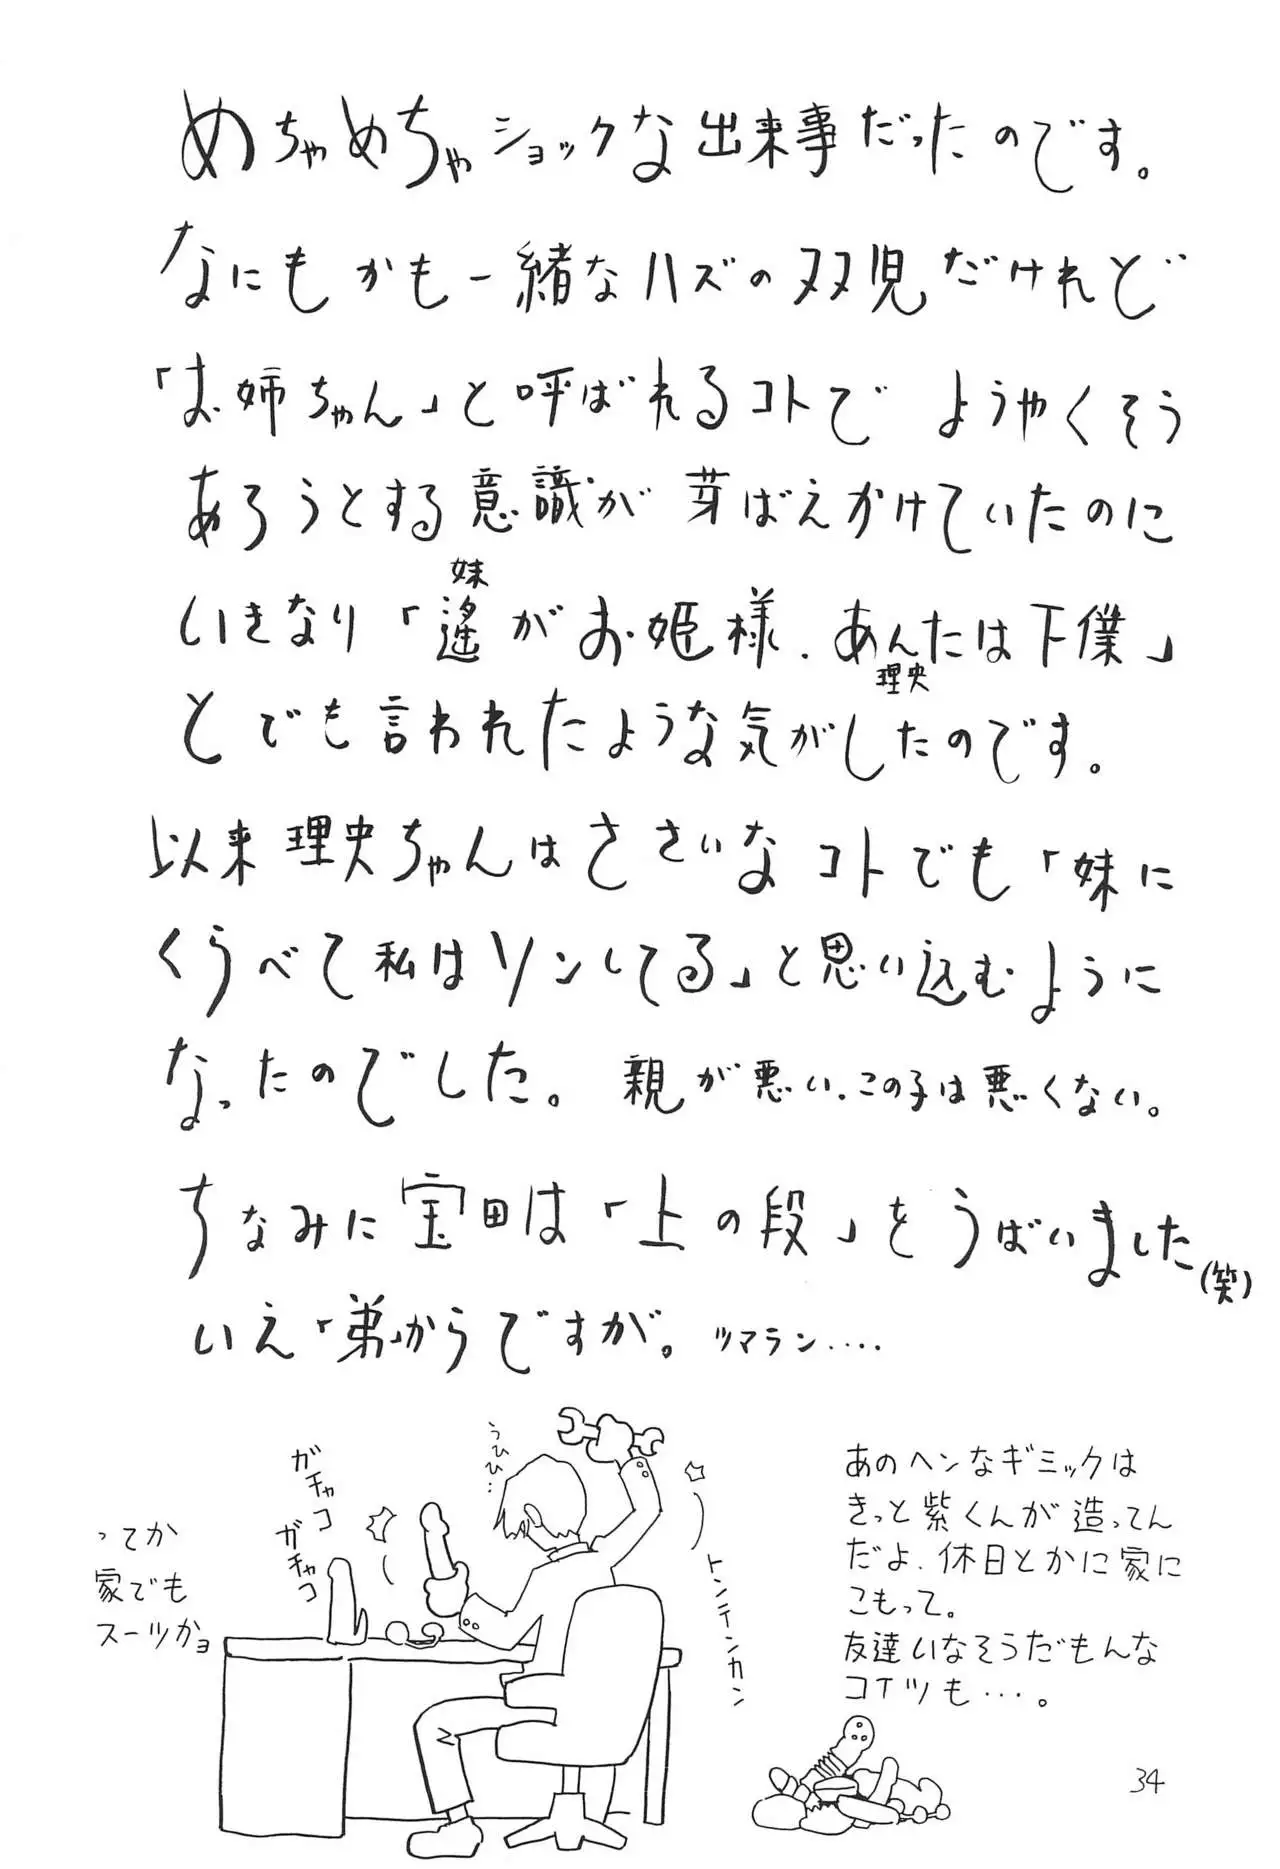 めちゃめちゃショックな出来事だったのです。
なにもかも一緒なハズの双児だけれど
「お姉ちゃん」と呼ばれるコトで ようやくそう
あろうとする意識が 芽ばえかけていたのに
妹
いきなり「遙がお姫様. あんたは下僕」
理央
とでも言われたような気がしたのです。
以来 理央ちゃんはささいなコトでも「妹に
くらべて私はソンしてる」と思い込むように
なったのでした。 親が悪い. この子は悪くない。
ちなみに宝田は「上の段」をうばいました
(笑)
いえ「弟」からですが。 ツマラン....
ってか
家でも
スーツかョ
ガチャコ
ガチャコ
うひひ...
トンテンカン
あのヘンなギミックは
きっと紫くんが造ってん
だよ. 休日とかに家に
こもって。
友達いなそうだもんな
コイツも…。
34